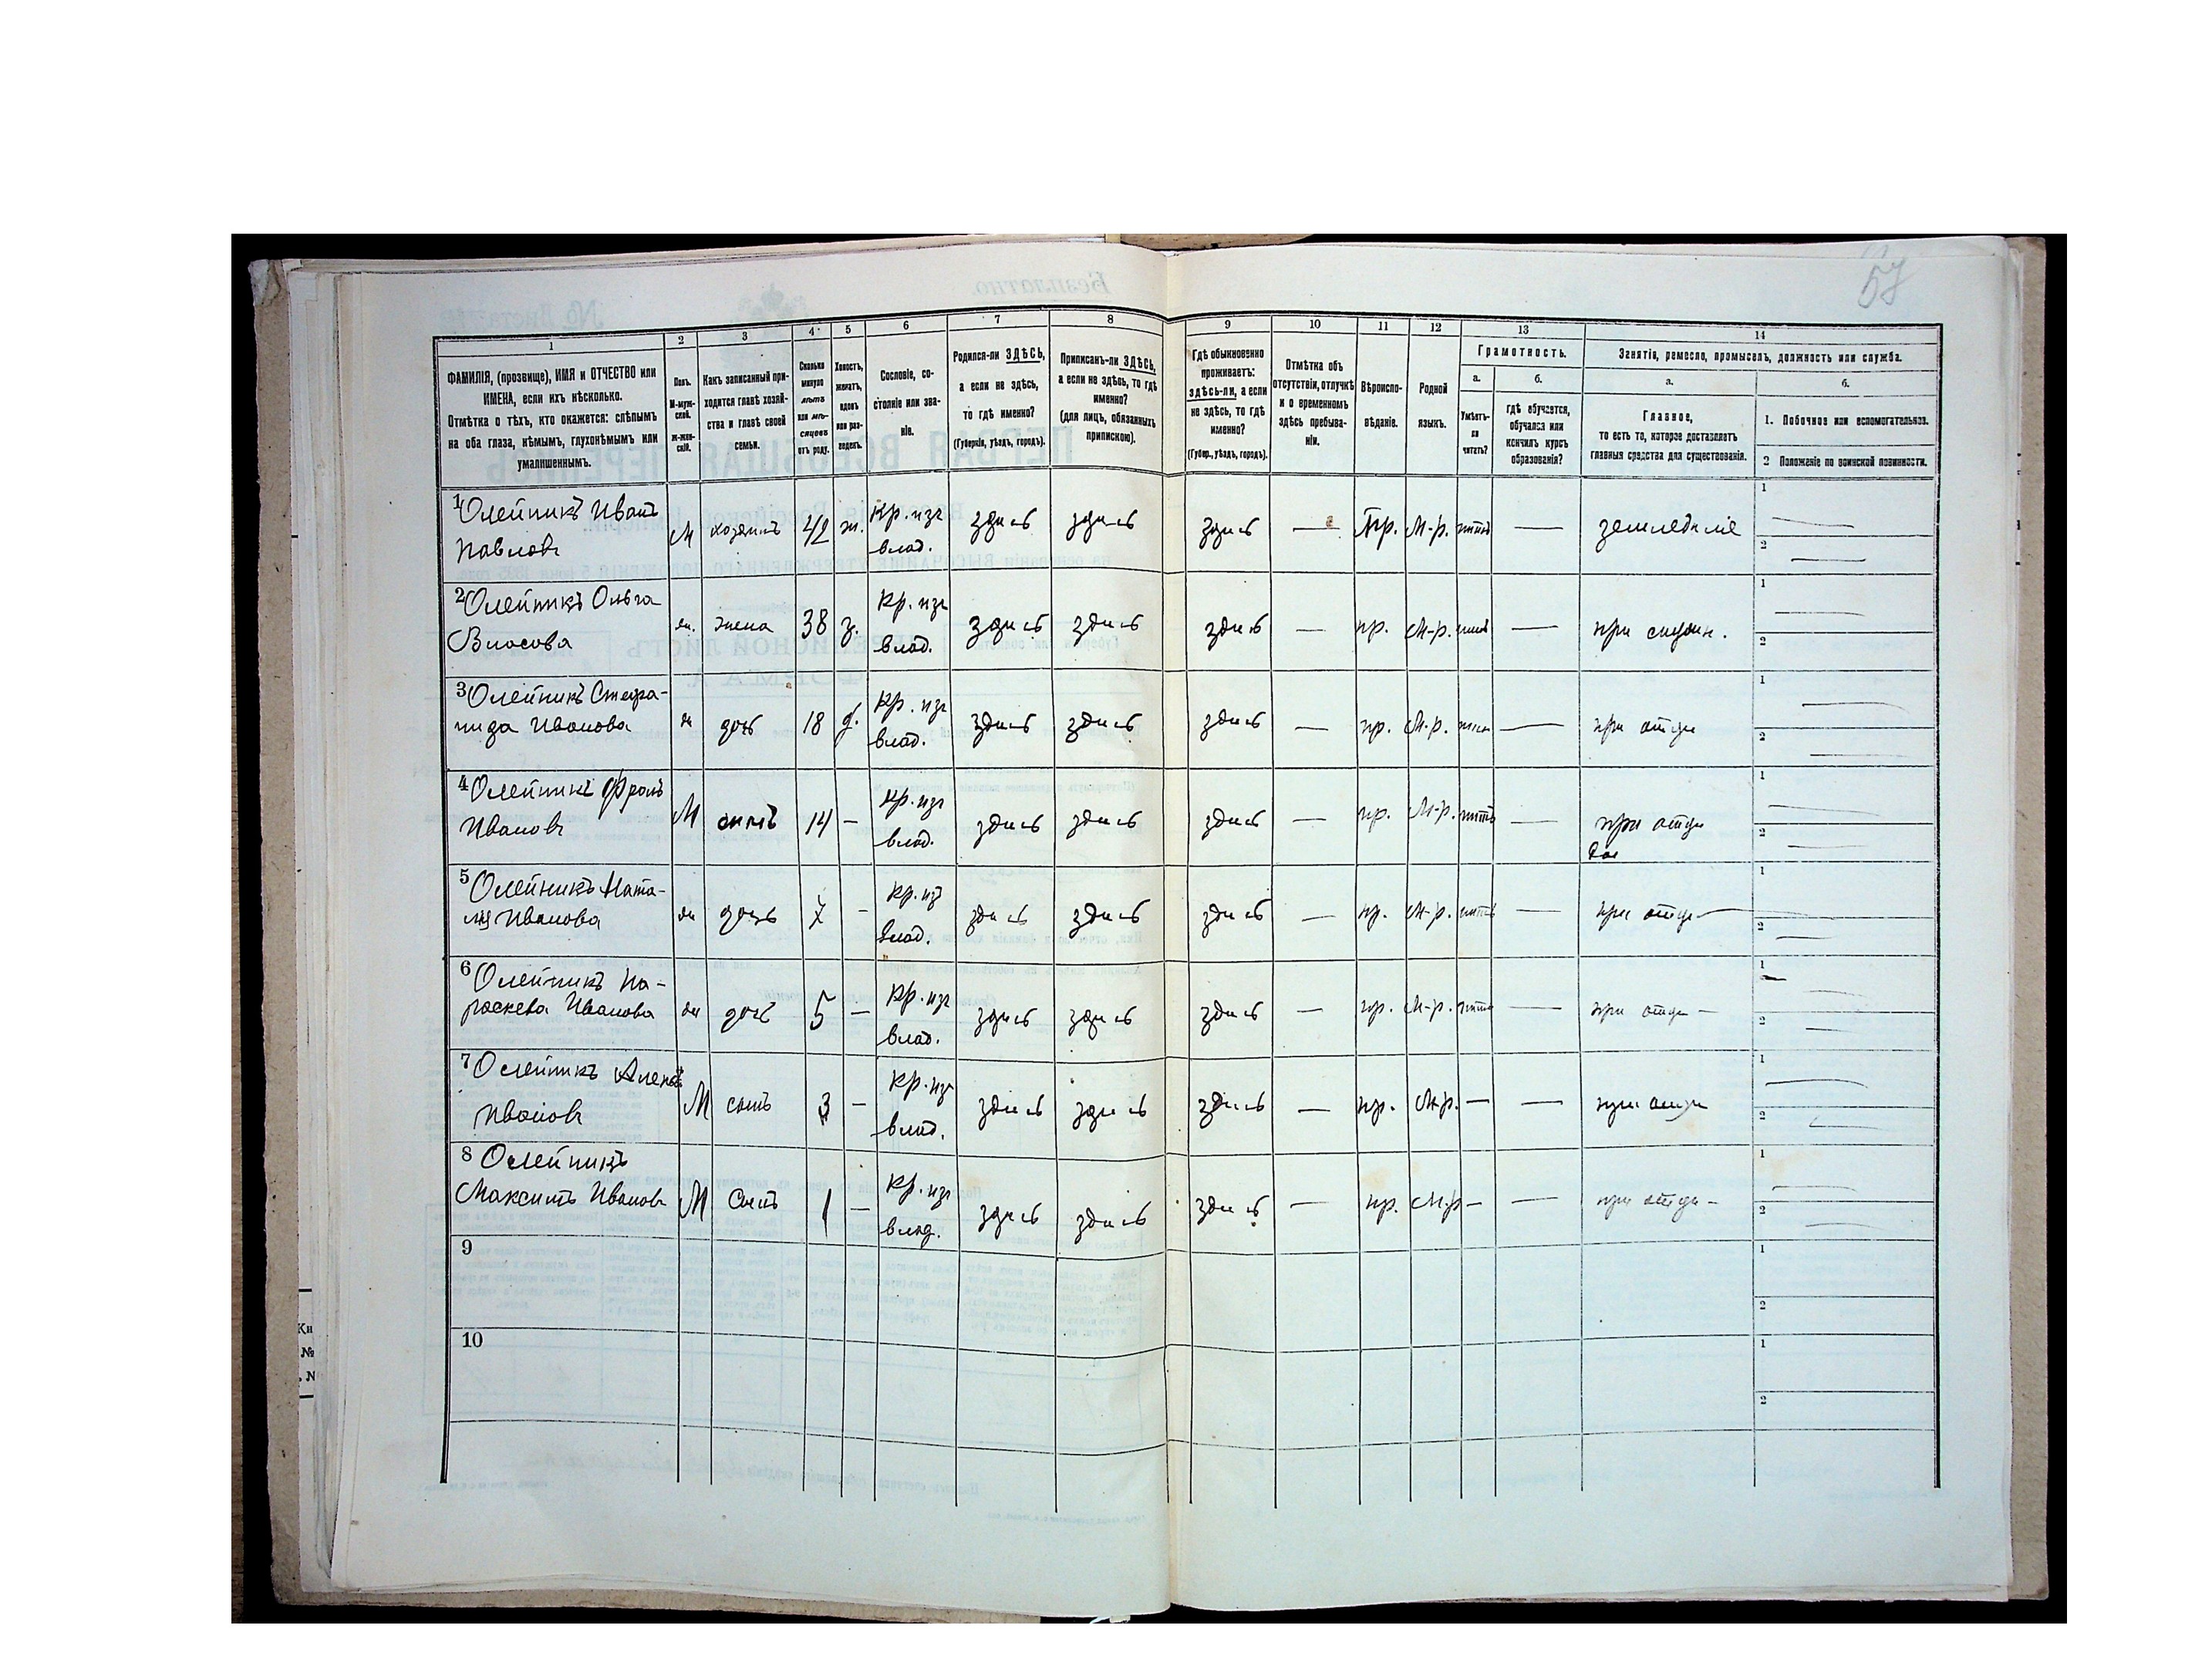 57
1 2 3 4 5 6 7 8 9 10 11 12 13 14
ФАМИЛІЯ, (прозвище), ИМЯ и ОТЧЕСТВО или ИМЕНА, если ихъ нѣсколько.
Отмѣтка о тѣхъ, кто окажется: слѣпымъ на оба глаза, нѣмымъ, глухонѣмымъ или умалишеннымъ.
Полъ. М-мужской. ж-женскій.
Какъ записанный приходится главѣ хозяйства и главѣ своей семьи.
Сколько минуло лѣтъ или мѣсяцевъ отъ роду.
Холостъ, женатъ, вдовъ или разведенъ.
Сословіе, состояніе или званіе.
Родился-ли ЗДѢСЬ, а если не здѣсь, то гдѣ именно?
(Губернія, уѣздъ, городъ).
Приписанъ-ли ЗДѢСЬ, а если не здѣсь, то гдѣ именно?
(для лицъ, обязанныхъ припискою).
Гдѣ обыкновенно проживаетъ: здѣсь-ли, а если не здѣсь, то гдѣ именно?
(Губер., уѣздъ, городъ).
Отмѣтка объ отсутствіи, отлучкѣ и о временномъ здѣсь пребываніи.
Вѣроисповѣданіе.
Родной языкъ.
Грамотность.
а. б.
Умѣетъ-ли читать?
гдѣ обучается, обучался или кончилъ курсъ образованія?
Занятія, ремесло, промыселъ, должность или служба.
а. б.
Главное,
то есть то, которое доставляетъ главныя средства для существованія.
1. Побочное или вспомогательное.
2 Положеніе по воинской повинности.
1 Олейникъ Иванъ Павловъ М хозяинъ 42 ж. Кр. изъ влад. здѣсь здѣсь здѣсь — Пр. М-р. нѣтъ — земледѣліе 1 — 2 —
2 Олейникъ Ольга Власова ж. жена 38 з. Кр. изъ влад. здѣсь здѣсь здѣсь — пр. М-р. нѣтъ — при 1 — 2
3 Олейникъ Стефанида Иванова ж дочь 18 д. Кр. изъ влад. здѣсь здѣсь здѣсь — пр. М-р. нѣтъ — при отцѣ 1 — 2 —
4 Олейникъ Фролъ Ивановъ М сынъ 14 — Кр. изъ влад. здѣсь здѣсь здѣсь — пр. М-р. нѣтъ — при отцѣ 1 — 2 —
5 Олейникъ Наталія Иванова ж дочь 7 — Кр. изъ влад. здѣсь здѣсь здѣсь — пр. М-р. нѣтъ — при отцѣ — 1 — 2 —
6 Олейникъ Параскева Иванова ж дочь 5 — Кр. изъ влад. здѣсь здѣсь здѣсь — пр. М-р. нѣтъ — при отцѣ — 1 — 2 —
7 Олейникъ Ивановъ М сынъ 3 — Кр. изъ влад. здѣсь здѣсь здѣсь — пр. М-р. — — при отцѣ 1 — 2 —
8 Олейникъ Максимъ Ивановъ М Сынъ 1 — Кр. изъ влад. здѣсь здѣсь здѣсь — пр. М-р — — при отцѣ — 1 — 2 —
9 1 2
10 1 2